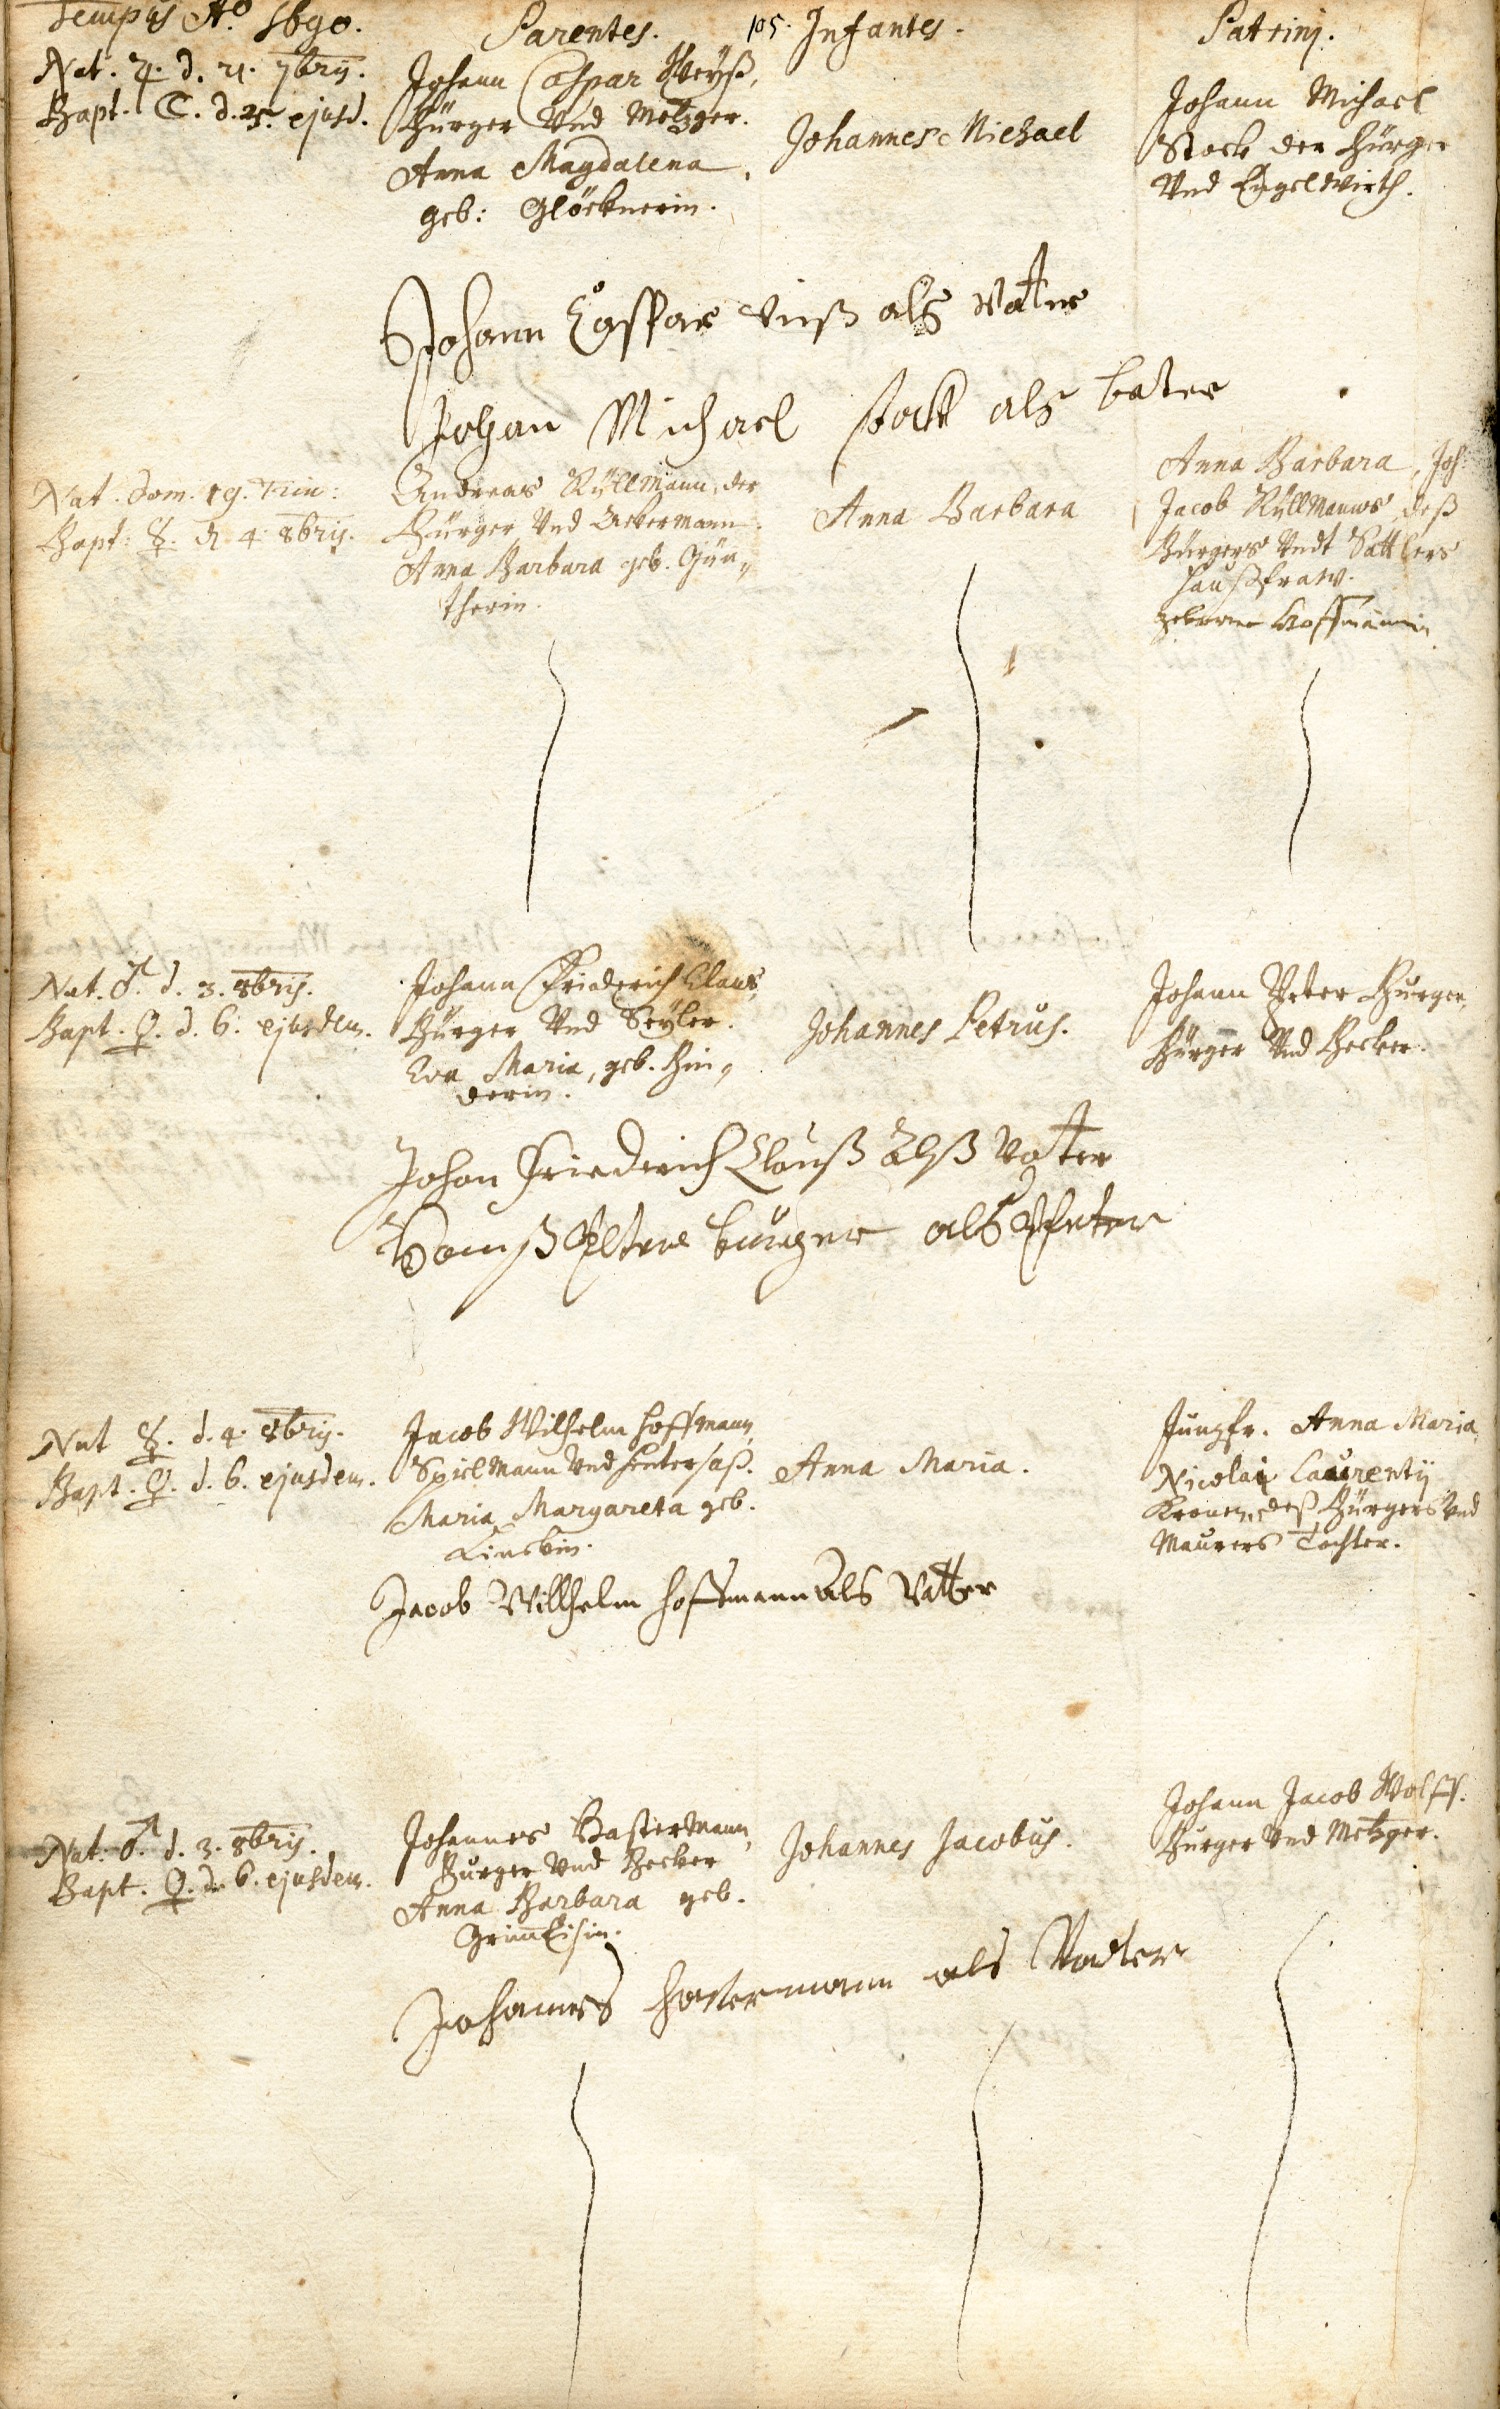 Tempus Aō 1690.
Parentes.
105.
Infantes.
Patrinj.
Nat. ♃. d. 21. 7bris.
Bapt. ☾. d. 25. ejusd.
Johann Caspar Weyß,
Bürger Und Metzger.
Anna Magdalena
geb: Glöcknerin.
Johannes Michael
Johann Michael
Stock der Bürger
Und Engelwirth.
Johann Casspar als Vatter
Johan Michael stock als
Nat. Dom. 19. Trin:
Bapt: ☿. d. 4. 8bris.
Andreas Rüllmann, der
Bürger Und Ackermann.
Anna Barbara geb. Gün„
therin.
Anna Barbara
Anna Barbara, Joh:
Jacob Rüllmanns deß
Bürgers Undt Sattlers
haußfraw.
geborne Hoffmännin.
Nat. ♂. d. 3. 8bris.
Bapt. ♀. d. 6. ejusdem.
Johann Friderich Claus,
Bürger Und Seyler.
Eva Maria, geb. Bin„
derin.
Johannes Petrus.
Johann Peter Burger,
Bürger Und Becker.
Johan Friederich Clauß Alß Vatter
Hanß Peter burger alß Pfetter
Nat ☿. d. 4. 8bris.
Bapt. ♀. d. 6. ejusdem.
Jacob Wilhelm Hoffmann,
Spielmann Und hintersaß.
Maria Margareta geb.
Anna Maria.
Jungfr. Anna Maria,
Nicolai Laurentij
Kronen, deß Bürgers Und
Maurers Tochter.
Jacob Willhelm Hoffmann Als Vatter
Nat. ♂. d. 3. 8bris.
Bapt. ♀. d. 6. ejusdem.
Johannes Hastermann,
Burger Und Becker
Anna Barbara geb.
Johannes Jacobus.
Johann Jacob Wolff.
Burger Und Metzger.
Johannes Hastermann als Vadter